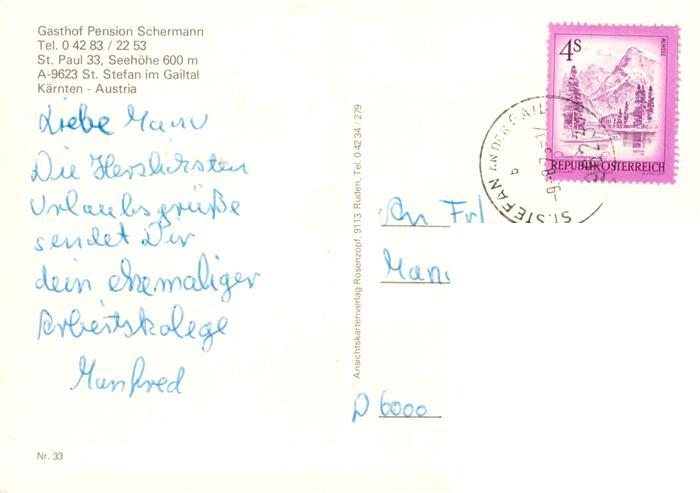 Gasthof Pension Schermann
Tel. 0 42 83 / 22 53
St. Paul 33, Seehöhe 600 m
A-9623 St. Stefan im Gailtal
Kärnten - Austria
Liebe Manu
Die Herslichsten
Urlaubsgrüße
sendet Dir
dein ehemaliger
Arbeitskolege
Manfred
Nr. 33
Ansichtskartenverlag Rosenzopf, 9113 Ruden, Tel. 0 42 34 / 279
4S
ALMSEE
REPUBLIK ÖSTERREICH
ST. STEFAN AN DER GAIL
An Frl
Manu
D 6000